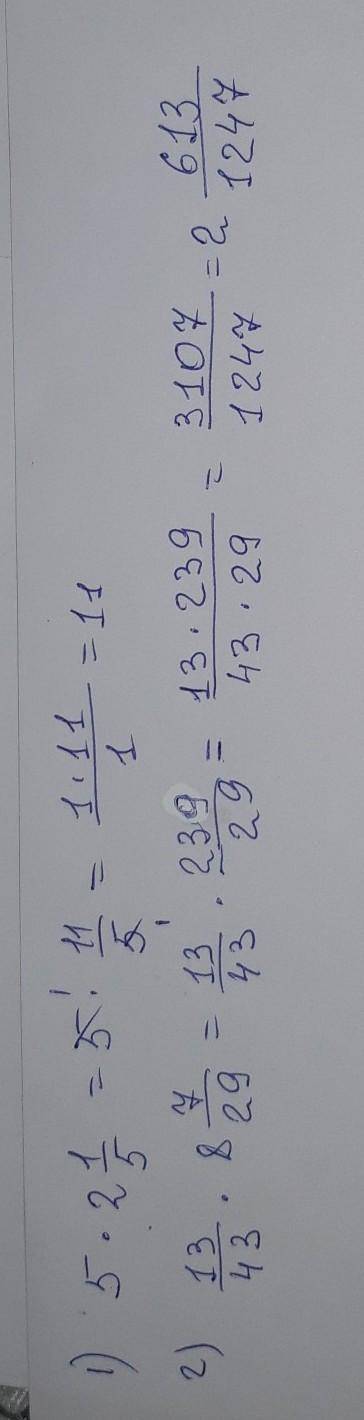 1) 5 · 2 1/5 = 5 1 · 11/5 1 = 1·11/1 = 11
2) 13/43 · 8 7/29 = 13/43 · 239/29 = 13·239/43·29 = 3107/1247 = 2 613/1247